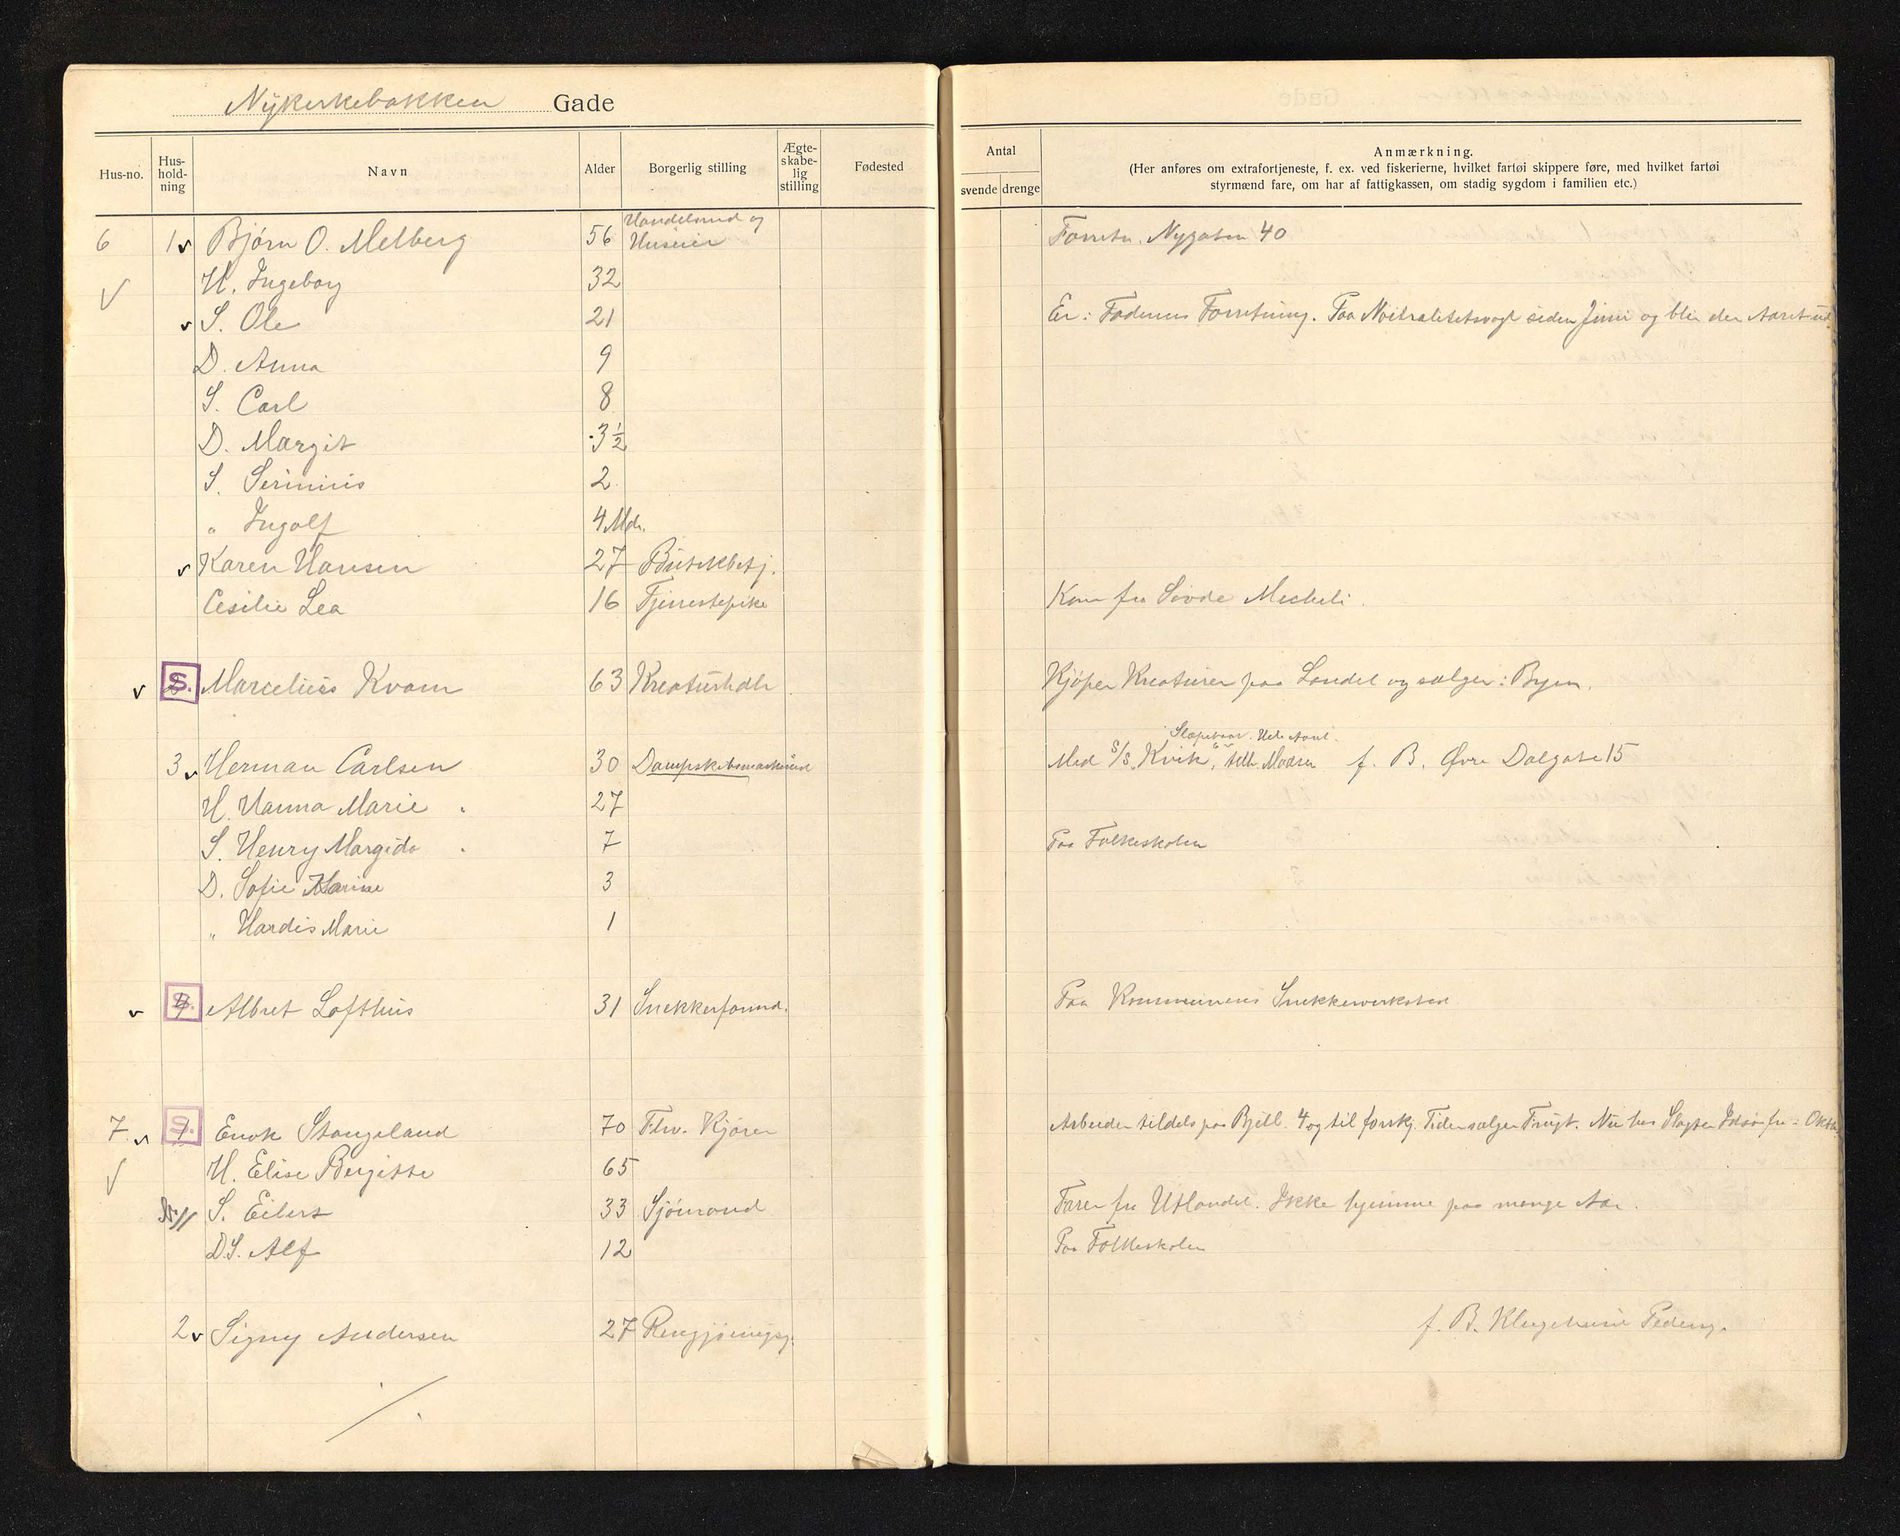 Nykirkebakken Gade
Hus-no. Hus-hold-ning Navn Alder Borgerlig stilling Ægte-skabe-lig stilling Fødested
Antal
svende drenge
Anmærkning.
(Her anføres om extrafortjeneste, f. ex. ved fiskerierne, hvilket fartøi skippere føre, med hvilket fartøi
styrmænd fare, om har af fattigkassen, om stadig sygdom i familien etc.)
6 1 v Bjørn O. Melberg 56 Handelsmd og Huseier Forretn. Nygaten 40
√ H. Ingeborg 32
v S. Ole 21 Er i Faderens Forretning. Paa Nøitralitetsvagt siden Juni og blir der Aaret ud
D. Anna 9
S. Carl 8
D. Margit 3½
S. Serinius 2
" Ingolf 4 Mdr.
v Karen Hansen 27 Butikbetj.
Cesilie Lea 16 Tjenestepike Kom fra Sovde Mickeli.
v S. Marcelius Kvam 63 Kreaturhdlr Kjøper Kreaturer paa Landet og sælger i Byen.
3 v Herman Carlsen 30 Dampskibsmaskinist Med S/S "Kvik", tilh. f. B. Øvre Dalgate 15
H. Hanna Marie 27
S. Henry Margido 7 Paa Folkeskolen
D. Sofie Marine 3
" Hardis Marie 1
v S. Albret Lofthus 31 Snekkerformd. Paa Kommunens Snekkerverksted
7 v S. Enok Stangeland 70 Fhv. Kjører Arbeider tildels paa 4 og til forskj. Tider sælger Frugt. Nu hos Slagter fra Oktbr.
√ H. Elise Bergitte 65
S. Eilert 33 Sjømand Farer fra Utlandet. Ikke hjemme paa mange Aar.
D.S. Alf 12 Paa Folkeskolen
2 v Signy Andersen 27 Rengjøringsg. f. B.